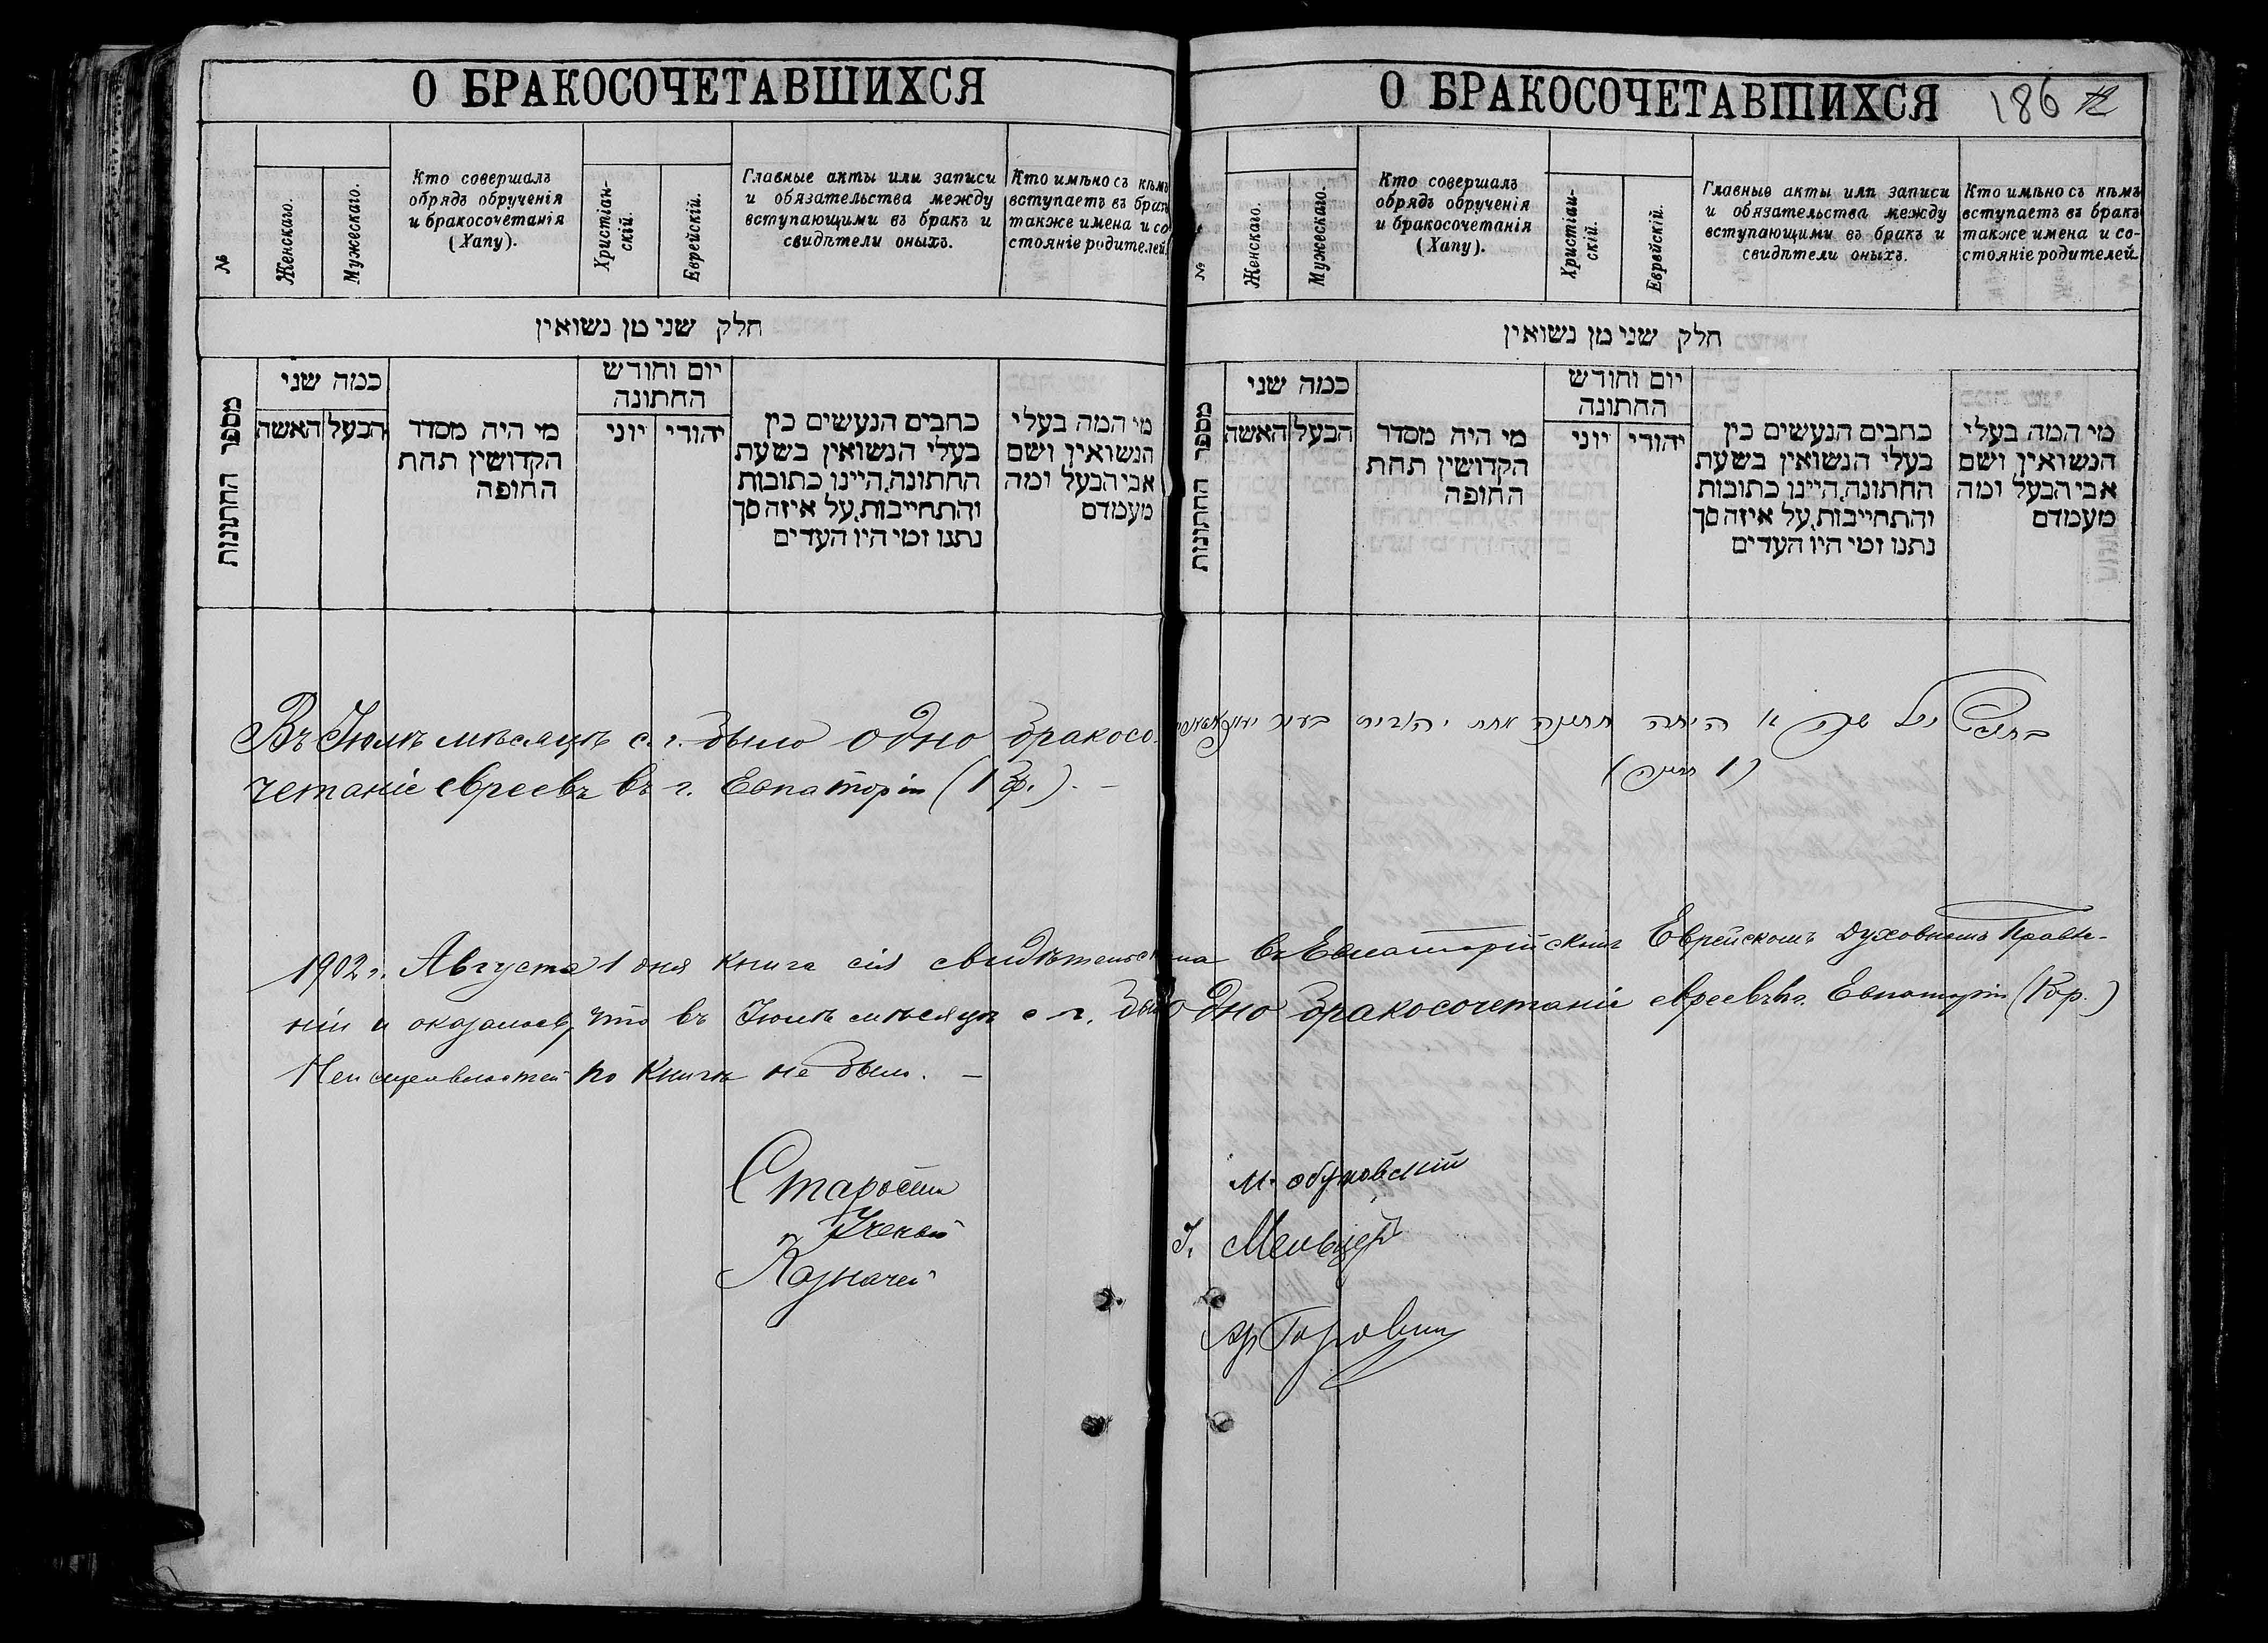 О БРАКОСОЧЕТАВШИХСЯ
№
Женскаго.
Мужескаго.
Кто совершалъ
обрядъ обрученія
и бракосочетанія
(Хапу).
Христіан-
скій.
Еврейскій.
Главные акты или записи
и обязательства между
вступающими въ бракъ и
свидѣтели оныхъ.
Кто имѣно съ кѣмъ
вступаетъ въ бракъ
также имена и со-
стояніе родителей.
חלק שני מן נשואין
מספר החתונות
כמה שני
האשה
הבעל
מי היה מסדר
הקדושין תחת
החופה
יום וחודש
החתונה
יוני
יהודי
כתבים הנעשים בין
בעלי הנשואין בשעת
החתונה, היינו כתובות
והתחייבות, על איזה סך
נתנו ומי היו העדים
מי המה בעלי
הנשואין ושם
אבי הבעל ומה
מעמדם
Въ Іюлѣ мѣсяцѣ с. г. было одно бракосо-
четаніе евреевъ въ г. Евпаторіи (1 бр.). –
О БРАКОСОЧЕТАВШИХСЯ
186
№
Женскаго.
Мужескаго.
Кто совершалъ
обрядъ обрученія
и бракосочетанія
(Хапу).
Христіан-
скій.
Еврейскій.
Главные акты или записи
и обязательства между
вступающими въ бракъ и
свидѣтели оныхъ.
Кто имѣно съ кѣмъ
вступаетъ въ бракъ
также имена и со-
стояніе родителей.
חלק שני מן נשואין
מספר החתונות
כמה שני
האשה
הבעל
מי היה מסדר
הקדושין תחת
החופה
יום וחודש
החתונה
יוני
יהודי
כתבים הנעשים בין
בעלי הנשואין בשעת
החתונה, היינו כתובות
והתחייבות, על איזה סך
נתנו ומי היו העדים
מי המה בעלי
הנשואין ושם
אבי הבעל ומה
מעמדם
היתה חתונה אחת יהודית בעיר
(1 חתונה)
1902 г. Августа 1 дня книга сія свидѣтельствована въ Евпаторійскомъ Еврейскомъ Духовномъ Правле-
ніи и оказалось, что въ Іюлѣ мѣсяцѣ с. г. было одно бракосочетаніе евреевъ въ г. Евпаторіи (1 бр.)
Неисправностей по книгѣ не было. –
Староста М. Обуховскій
Ученый І. Мельцеръ
Казначей